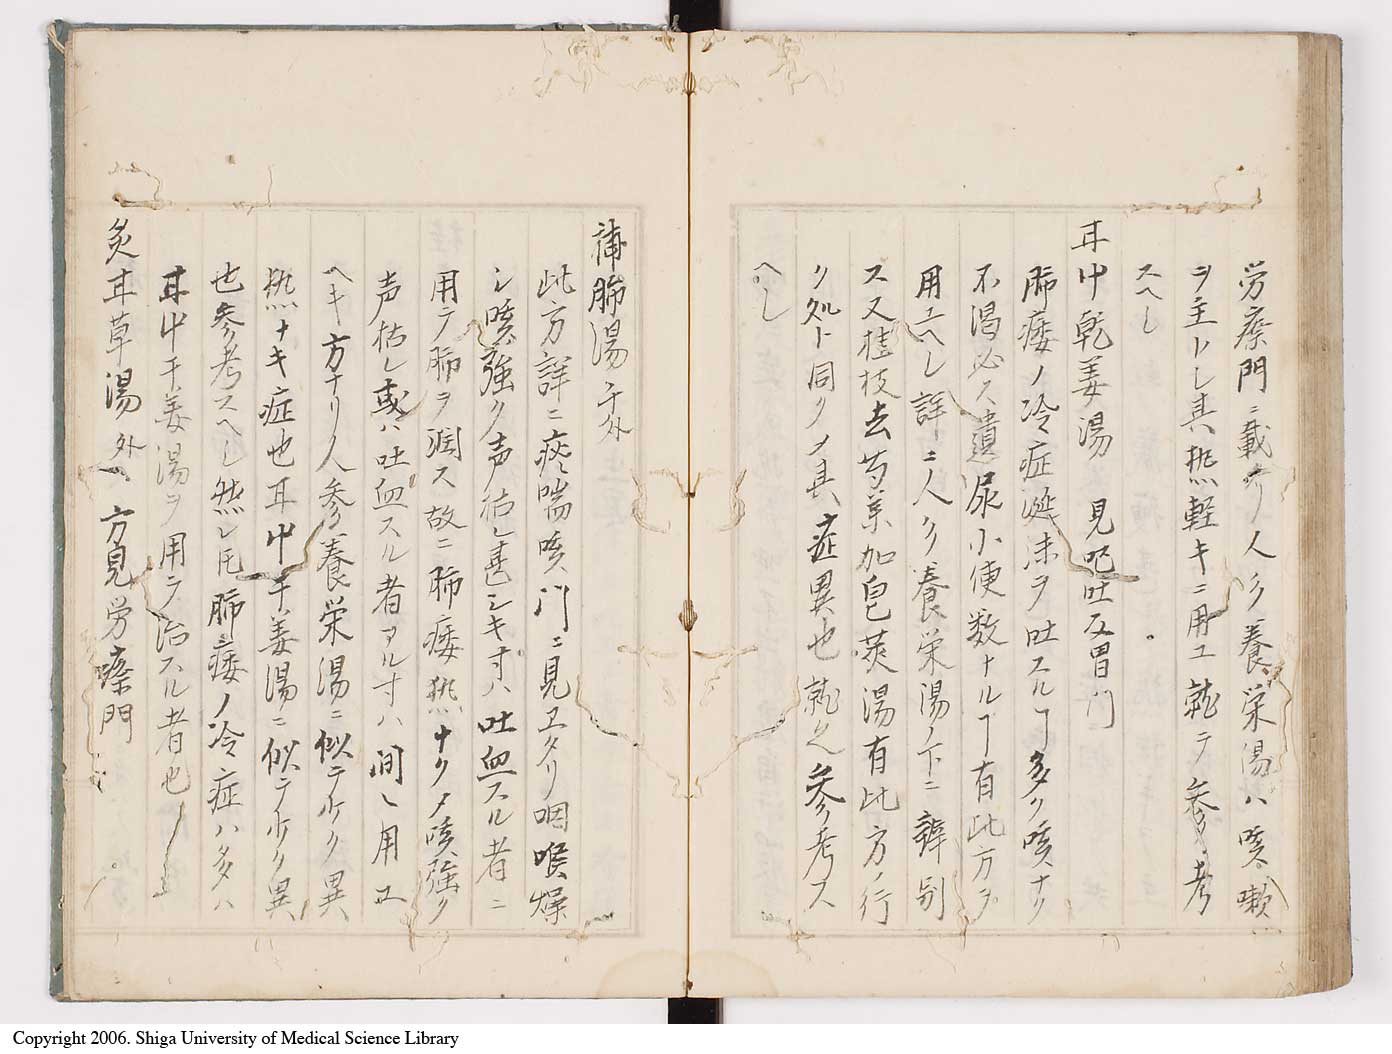 労瘵門ニ載タリ人参養栄湯ハ咳嗽
ヲ主トし其热軽キニ用ユ就テ参考
スヘし
耳艸乾姜湯 見呕吐反胃門
肺痿ノ冷症涎沫ヲ吐スルヿ多ク咳ナク
不渇必ス遺尿小便数ナルヿ有此方ヲ
用ユヘし詳ニ人参養栄湯ノ下ニ辨别
ス又桂枝去芍薬加皂莢湯有此方ノ行
ク処ト同クメ其症異也就之参考ス
ヘし
補肺湯 千外
此方詳ニ痰喘咳門ニ見ヱタリ咽喉燥
シ咳強ク声枯し甚シキ寸ハ吐血スル者ニ
用テ肺ヲ潤ス故ニ肺痿热ナクメ咳強ク
声枯し或ハ吐血スル者アル寸ハ間〻用ユ
ヘキ方ナリ人参養栄湯ニ似テ少ク異
热ナキ症也耳艸干姜湯ニ似テ少ク異
也参考スヘし然レ𪜈肺痿ノ冷症ハ多ハ
耳艸干姜湯ヲ用テ治スル者也
炙耳草湯 外 方見労瘵門
Copyright 2006. Shiga University of Medical Science Library